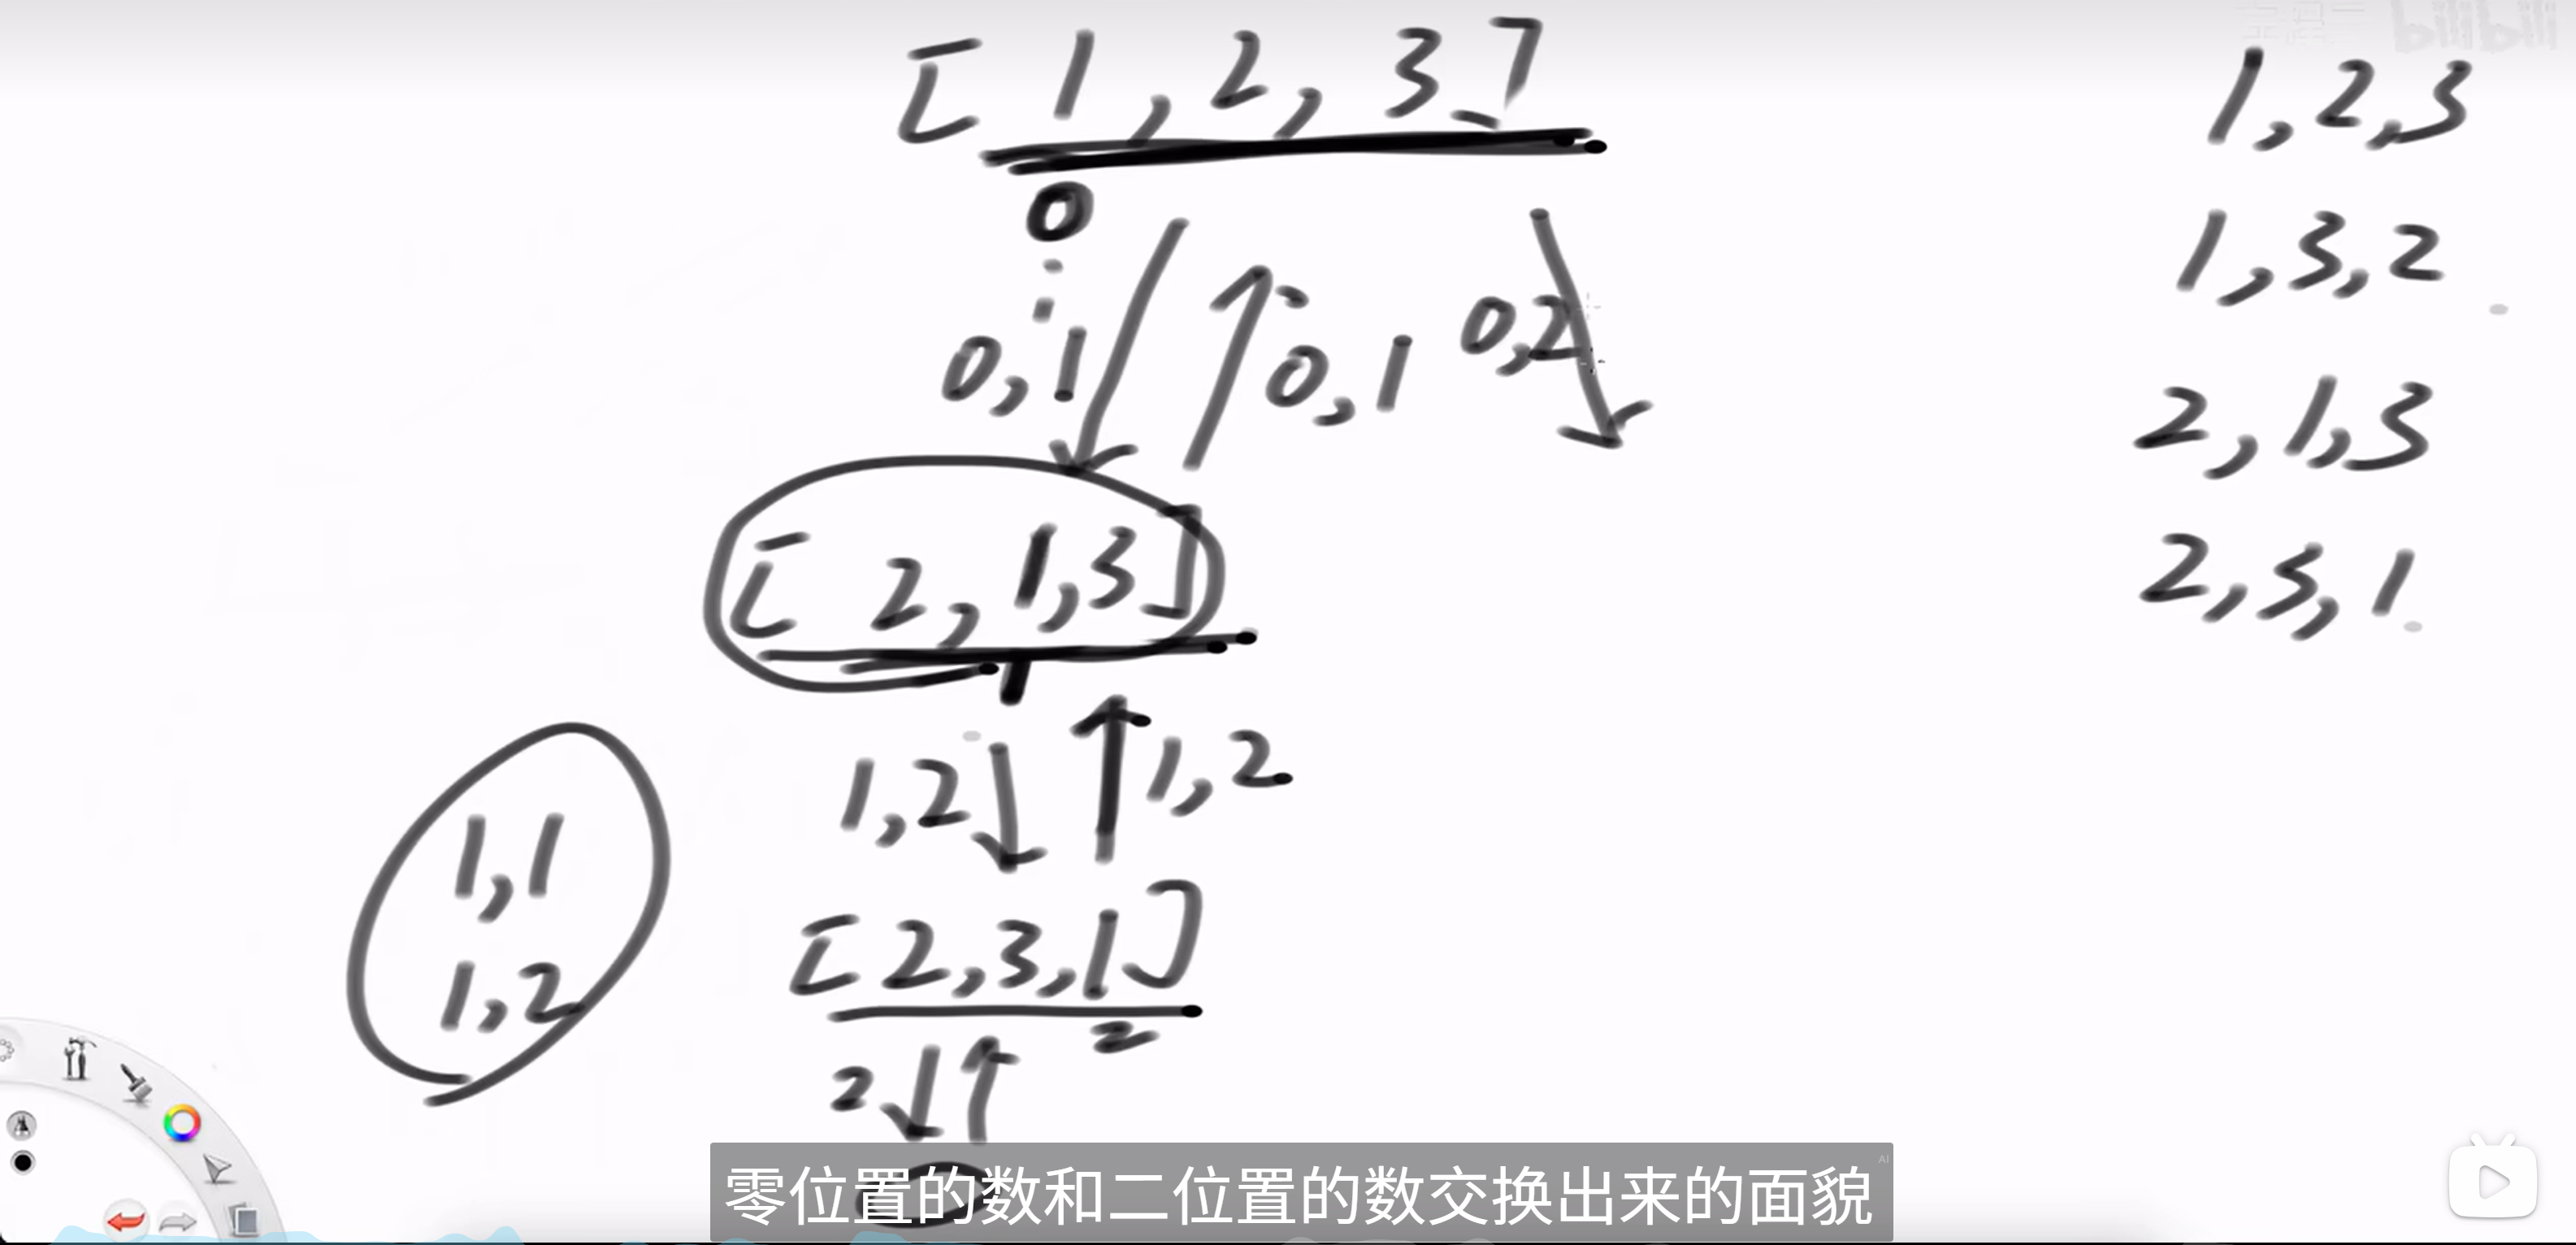 bilibili
[1,2,3]
0
0,1
0,1
0,2
[2,1,3]
1
1,2
1,2
1,1
1,2
[2,3,1]
2
2
1,2,3
1,3,2
2,1,3
2,3,1
零位置的数和二位置的数交换出来的面貌
AI